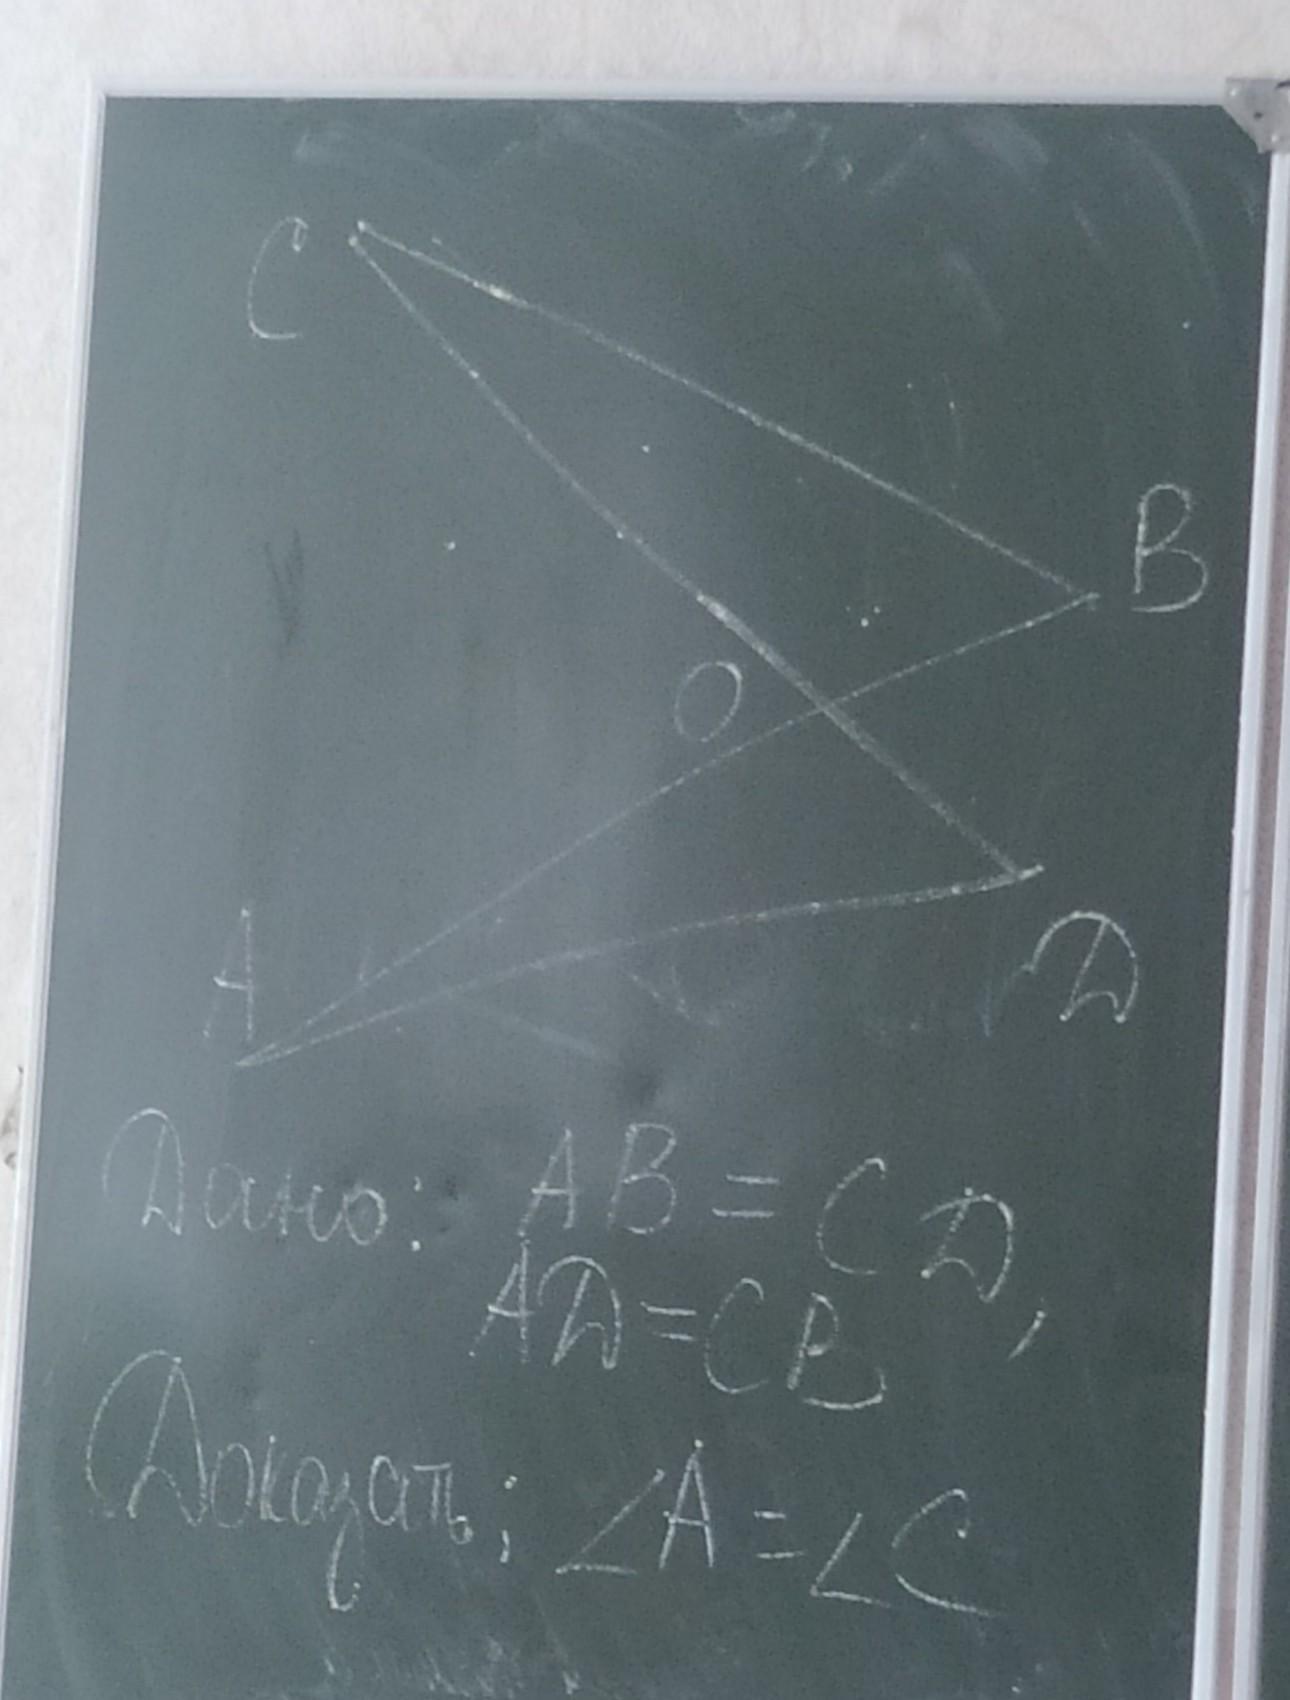 C
B
O
A
D
Дано: AB = CD,
AD = CB
Доказать: ∠A = ∠C